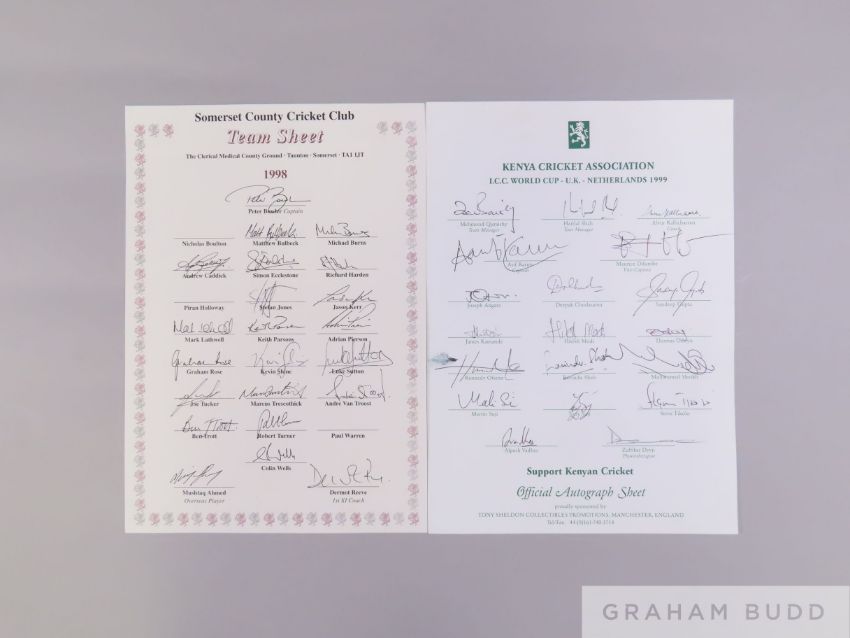 Somerset County Cricket Club
Team Sheet
The Clerical Medical County Ground · Taunton · Somerset · TA1 1JT
1998
Peter Bowler Captain
Nicholas Boulton Matthew Bulbeck Michael Burns
Andrew Caddick Simon Ecclestone Richard Harden
Piran Holloway Stefan Jones Jason Kerr
Mark Lathwell Keith Parsons Adrian Pierson
Graham Rose Kevin Shine Luke Sutton
Joe Tucker Marcus Trescothick Andre Van Troost
Ben Trott Robert Turner Paul Warren
Colin Wells
Mushtaq Ahmed Dermot Reeve
Overseas Player 1st XI Coach
KENYA CRICKET ASSOCIATION
I.C.C. WORLD CUP - U.K. - NETHERLANDS 1999
Harilal Shah Alvin Kallicharan
Team Manager Tour Manager Coach
Asif Karim Maurice Odumbe
Captain Vice-Captain
Joseph Angara Deepak Chudasama Sandeep Gupta
James Kamande Hitesh Modi Thomas Odoyo
Kennedy Otieno Ravindu Shah Mohammed Sheikh
Martin Suji Steve Tikolo
Alpesh Vadher
Physiotherapist
Support Kenyan Cricket
Official Autograph Sheet
proudly sponsored by
TONY SHELDON COLLECTIBLES PROMOTIONS, MANCHESTER, ENGLAND
Tel/Fax
GRAHAM BUDD